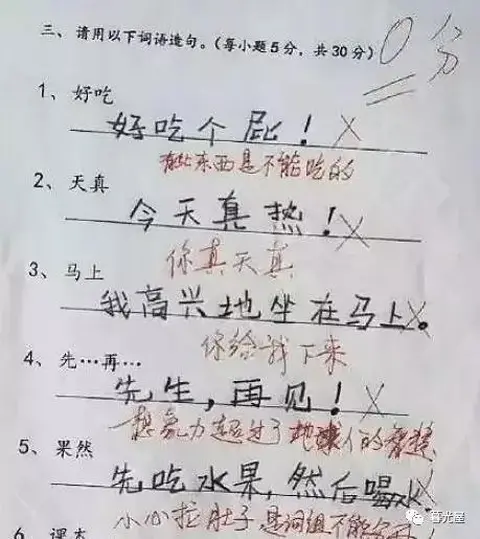 三、请用以下词语造句。(每小题5分，共30分) 0分
1、好吃
好吃个屁！
有些东西是不能吃的
2、天真
今天真热！
你真天真
3、马上
我高兴地坐在马上。
你给我下来
4、先…再…
先生，再见！
想象力超过了地球人的智慧
5、果然
先吃水果，然后喝水
小心拉肚子 是词组不能分开！
6、课本
暮光屋